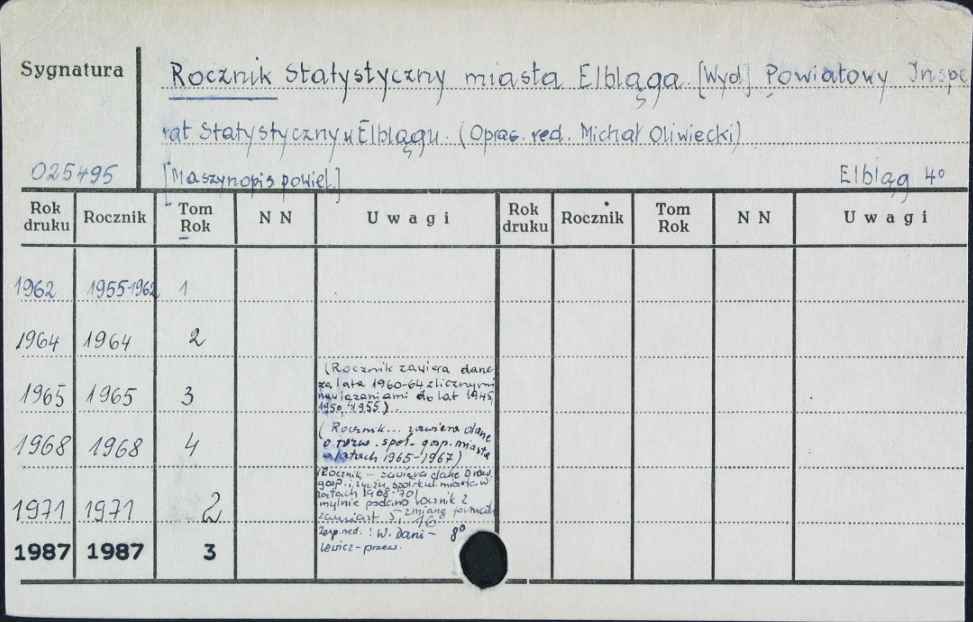 Sygnatura
Rocznik Statystyczny miasta Elbląga [Wyd] Powiatowy Inspe
rat Statystyczny w Elblągu. (Oprac. red. Michał Oliwiecki)
025495 [Maszynopis powiel.] Elbląg 4°
Rok druku Rocznik Tom Rok N N Uwagi Rok druku Rocznik Tom Rok N N Uwagi
1962 1955-1962 1
1964 1964 2
1965 1965 3
(Rocznik zawiera dane
za lata 1960-64 z licznymi
nawiązaniami do lat 1945,
1950, 1955).
1968 1968 4
(Rocznik... zawiera dane
o rozw. społ.-gosp. miasta
w latach 1965-1967)
1971 1971 2
(Rocznik – zawiera dane o rozw.
gosp. i życiu społ. kul. miasta w
latach 1968-70)
mylnie podano rocznik 2
zamiast 5,
1987 1987 3
Zesp. red.: W. Dani- 8°
lewicz-przew.